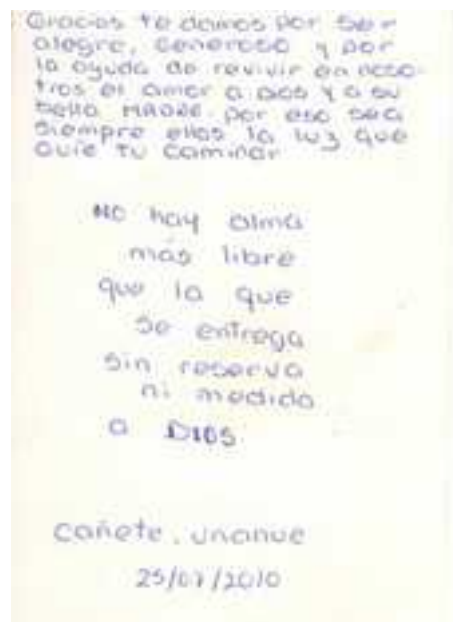 Gracias te damos por ser
alegre, generoso y por
la ayuda de revivir en noso-
tros el amor a Dios y a su
bella MADRE. por eso sea
siempre ellos la luz que
guíe tu caminar
NO hay alma
más libre
que la que
se entrega
sin reserva
ni medida
a DIOS
Cañete, unanue
25/07/2010